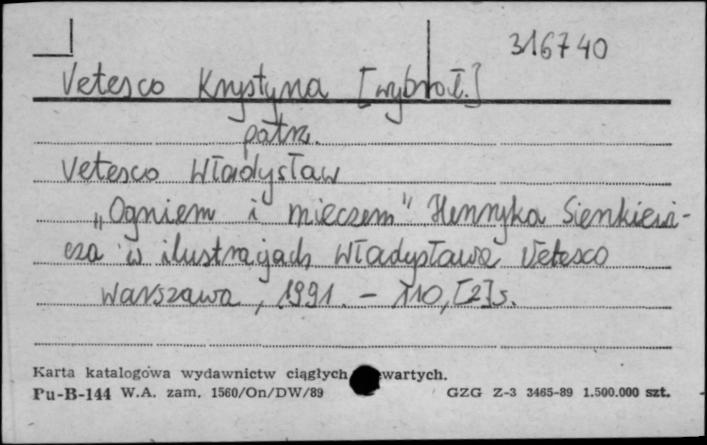 316740
Vetesco Krystyna [wybrał.]
patrz.
Vetesco Władysław
„Ogniem i mieczem" Henryka Sienkiewi-
cza w ilustracjach Władysława Vetesco
Warszawa, 1991. - 110, [2] s.
Karta katalogowa wydawnictw ciągłych wartych.
Pu-B-144 W.A. zam. 1560/On/DW/89 GZG Z-3 3465-89 1.500.000 szt.